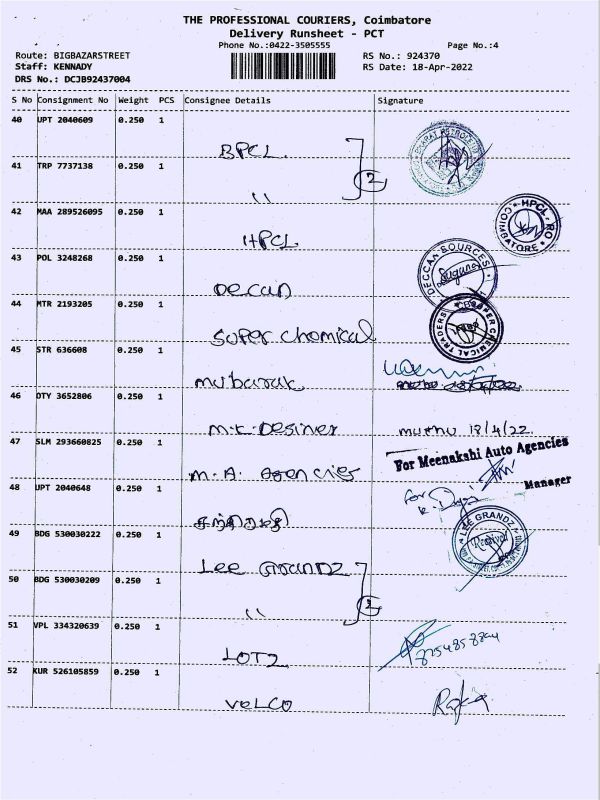 THE PROFESSIONAL COURIERS, Coimbatore
Delivery Runsheet - PCT
Phone No.:0422-3505555 Page No.:4
Route: BIGBAZARSTREET RS No.: 924370
Staff: KENNADY RS Date: 18-Apr-2022
DRS No.: DCJB92437004
S No Consignment No Weight PCS Consignee Details Signature
40 UPT 2040609 0.250 1
BPCL
BHARAT PETROLEUM
41 TRP 7737138 0.250 1
2
"
42 MAA 289526095 0.250 1
HPCL
HPCL-RO COIMBATORE
43 POL 3248268 0.250 1
Deccan
DECCAN SOURCES
44 MTR 2193205 0.250 1
Super chemical
SUPER CHEMICAL TRADERS CBE
45 STR 636608 0.250 1
mubarak
46 OTY 3652806 0.250 1
M.K. Desiner muthu 18/4/22.
47 SLM 293660825 0.250 1
For Meenakshi Auto Agencies
M.A. Agencies
Manager
48 UPT 2040648 0.250 1
for
49 BDG 530030222 0.250 1
Lee Grandz
LEE GRANDZ
Received
50 BDG 530030209 0.250 1
2
"
51 VPL 334320639 0.250 1
LOTZ
52 KUR 526105859 0.250 1
VELCO